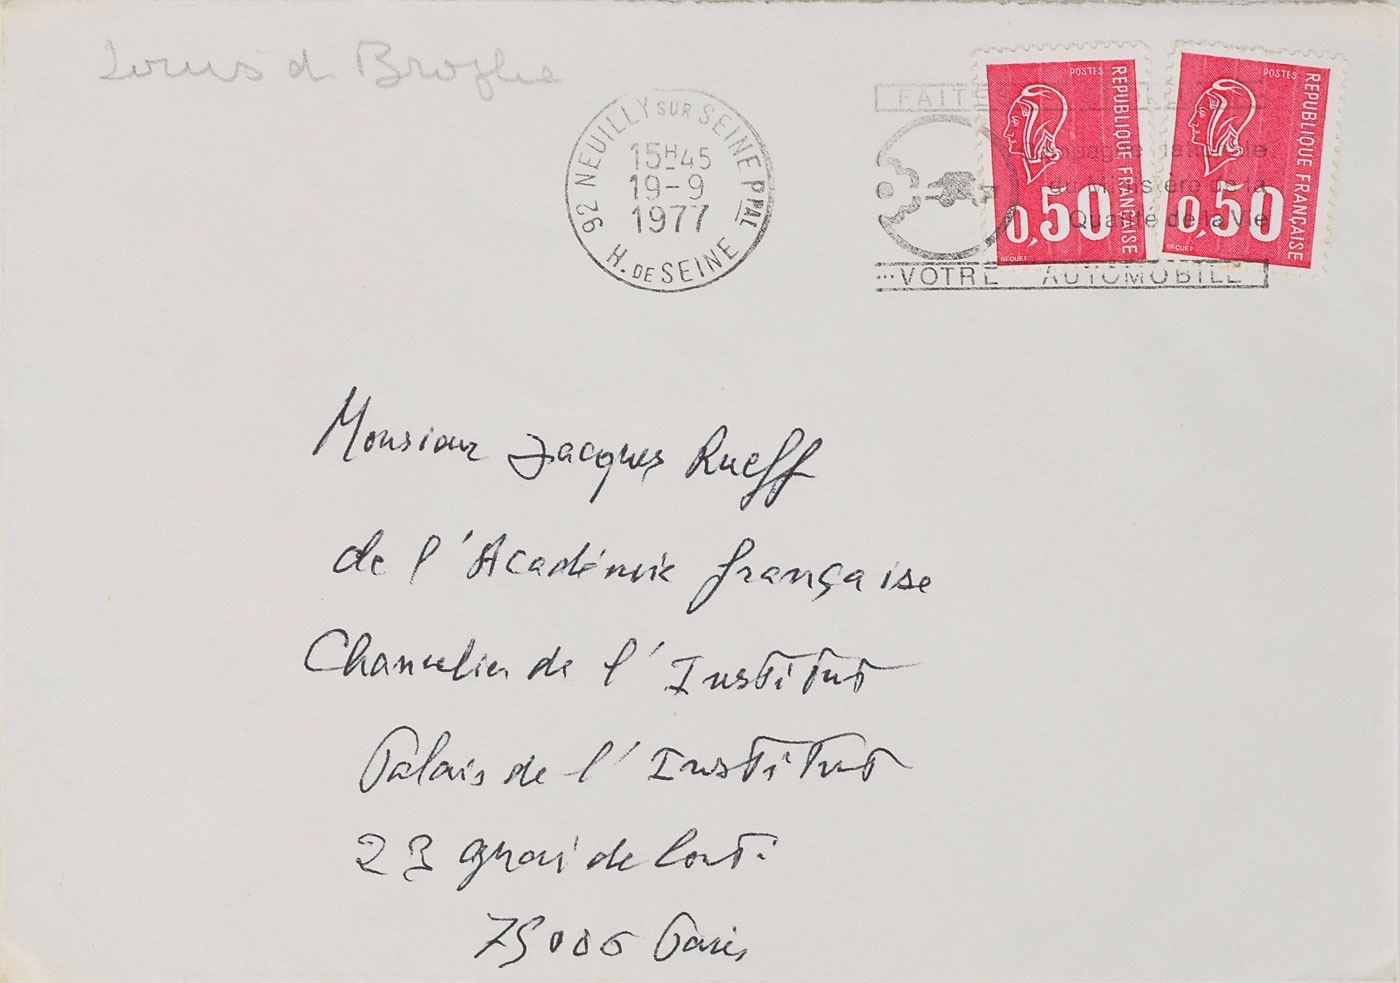 Louis de Broglie
92 NEUILLY SUR SEINE PPAL
15H45
19-9
1977
H. DE SEINE
FAITES
campagne nationale
du Ministère de la
Qualité de la Vie
...VOTRE AUTOMOBILE
POSTES
REPUBLIQUE FRANÇAISE
0,50
BEQUET
POSTES
REPUBLIQUE FRANÇAISE
0,50
BEQUET
Monsieur Jacques Rueff
de l'Académie française
Chancelier de l'Institut
Palais de l'Institut
23 quai de Conti
75006 Paris